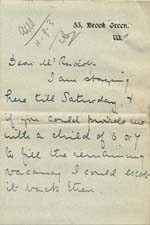 55, Brook Green,
W.
11.9.3
Dear Mr Rudolf
I am staying
here till Saturday, &
if you could provide me
with a child of 5 or 7
to fill the remaining
vacancy I could escort
it back then.